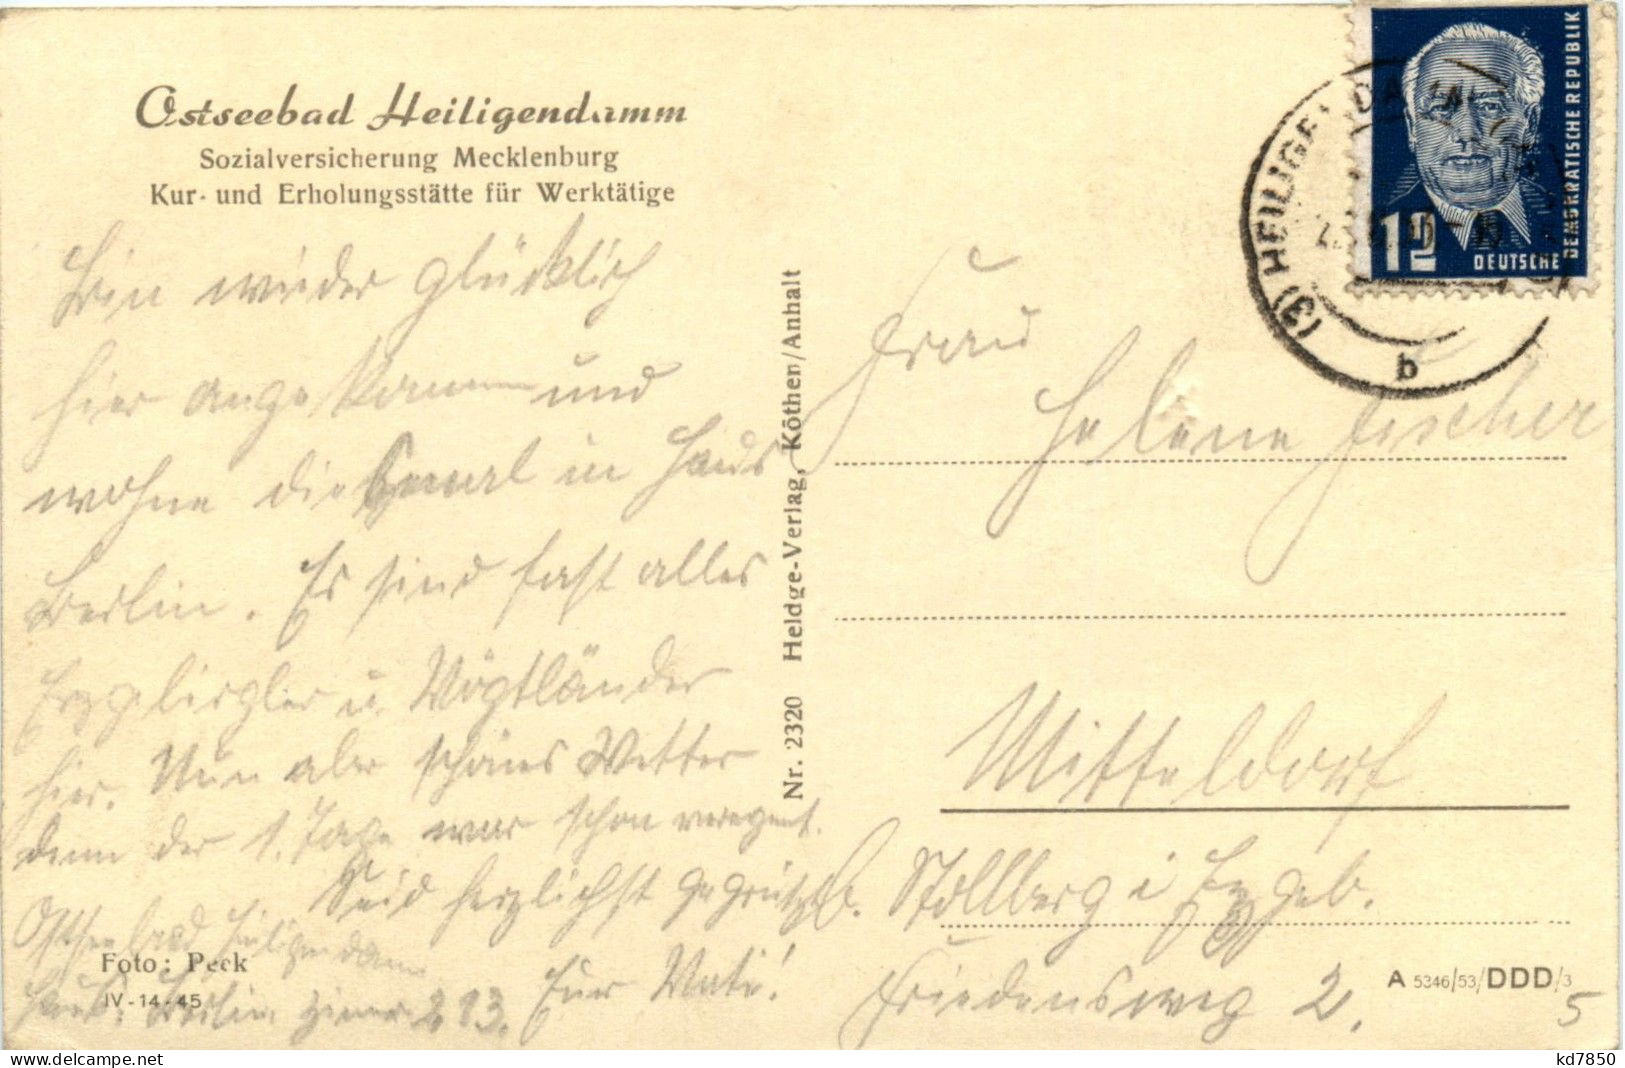 Ostseebad Heiligendamm
Sozialversicherung Mecklenburg
Kur- und Erholungsstätte für Werktätige
Bin wieder glücklich
hier angekommen und
wohne diesmal in Haus
Berlin. Es sind fast alles
Erzgebirgler u. Vogtländer
hier. Nun aber schönes Wetter
denn der 1. Tage war schon verregnet.
Seid herzlichst gegrüßt
Euer Vati!
Ostseebad Heiligendamm
Haus: Berlin Zimer 213.
Foto: Peck
IV-14-45
Nr. 2320 Heldge-Verlag, Köthen/Anhalt
DEUTSCHE DEMOKRATISCHE REPUBLIK
12
(3) HEILIGENDAMM
b
Frau
Helene Fischer
Mitteldorf
b. Stollberg i Erzgeb.
Friedensweg 2.
A 5346/53/DDD/3
5
kd7850